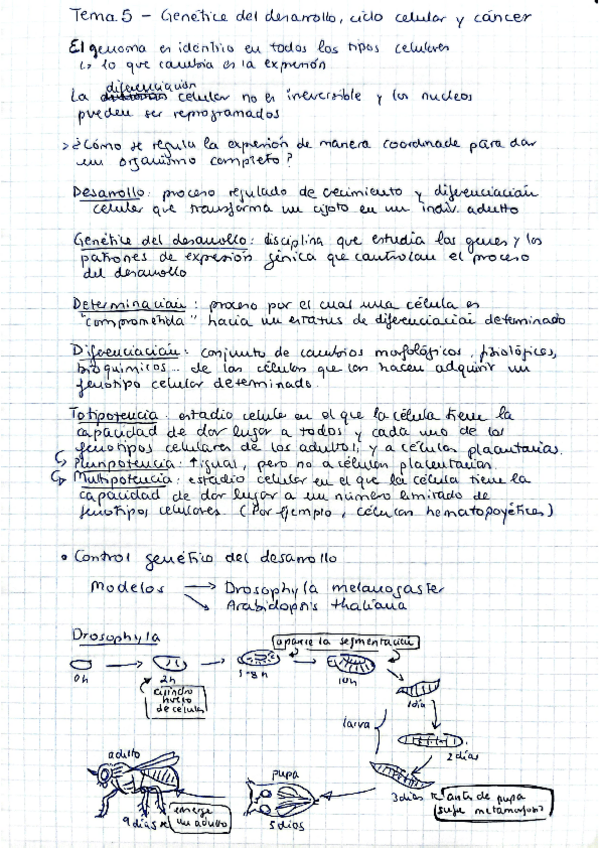 Tema 5 – Genética del desarrollo, ciclo celular y cáncer
El genoma es idéntico en todos los tipos celulares
↳ lo que cambia es la expresión
La diferenciación celular no es irreversible y los nucleos
pueden ser reprogramados
> ¿Cómo se regula la expresión de manera coordinada para dar
un organismo completo?
Desarrollo: proceso regulado de crecimiento y diferenciación
celular que transforma un cigoto en un indiv. adulto
Genética del desarrollo: disciplina que estudia los genes y los
patrones de expresión génica que controlan el proceso
del desarrollo
Determinación: proceso por el cual una célula es
"comprometida" hacia un estatus de diferenciación determinado
Diferenciación: conjunto de cambios morfológicos, fisiológicos,
bioquímicos... de las células que las hacen adquirir un
fenotipo celular determinado.
Totipotencia: estadio celular en el que la célula tiene la
capacidad de dar lugar a todos y cada uno de los
fenotipos celulares de los adultos, y a células placentarias.
Pluripotencia: igual, pero no a células placentarias.
Multipotencia: estadio celular en el que la célula tiene la
capacidad de dar lugar a un número limitado de
fenotipos celulares. (Por ejemplo, células hematopoyéticas)
• Control genético del desarrollo
Modelos → Drosophyla melanogaster
↘ Arabidopsis thaliana
Drosophyla
aparece la segmentación
0h
2h
3-8h
10h
cilindro
hueco
de células
1 día
larva
2 días
3 días
antes de pupa
sufre metamorfosis
pupa
5 días
adulto
9 días
emerge
un adulto